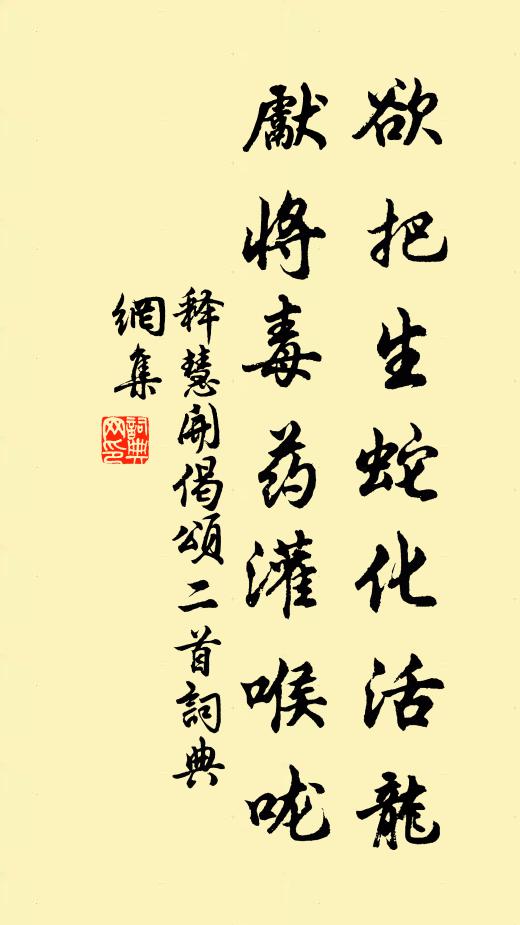 欲把生蛇化活龍
獻將毒药灌喉咙
释慧開偈頌二首詞典
網集
詞典
网印